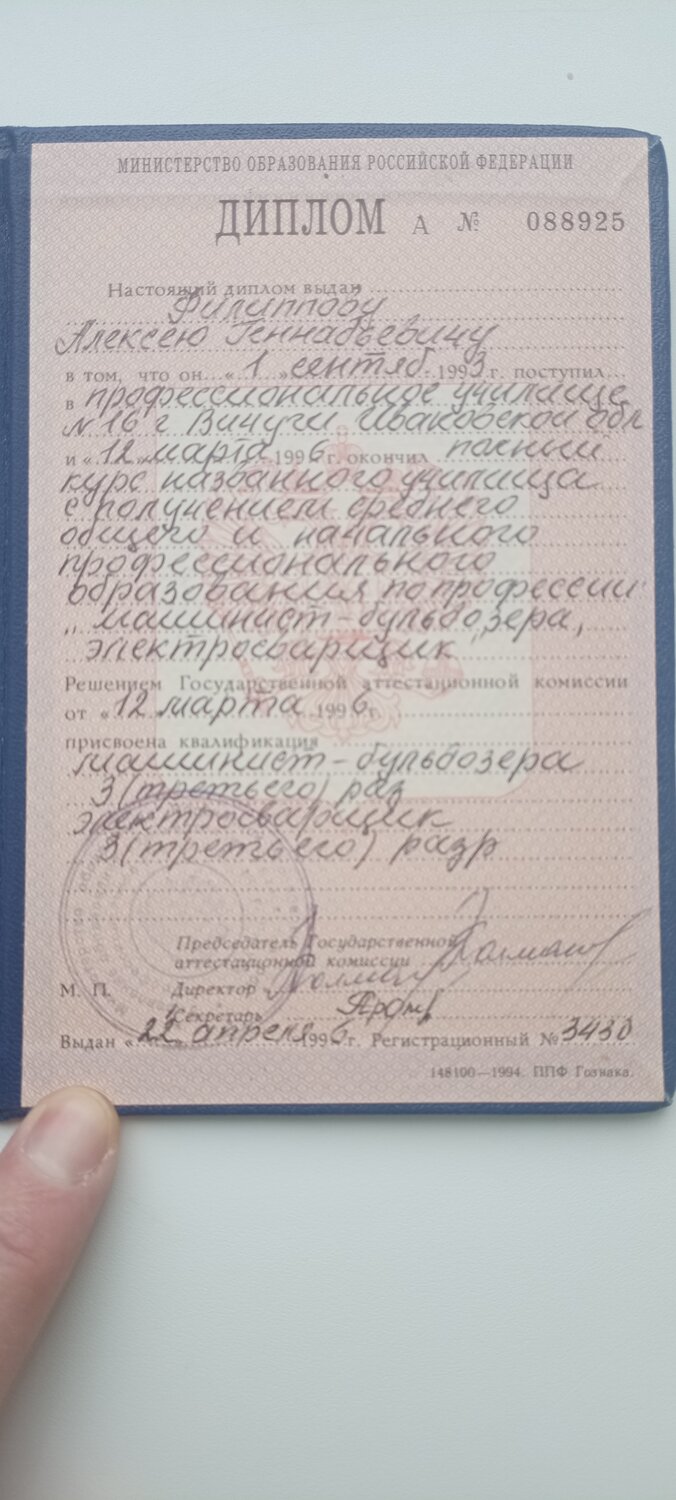 МИНИСТЕРСТВО ОБРАЗОВАНИЯ РОССИЙСКОЙ ФЕДЕРАЦИИ
ДИПЛОМ А № 088925
Настоящий диплом выдан
Филиппову
Алексею Геннадьевичу
в том, что он « 1 » сентяб. 1993 г. поступил
в профессиональное училище
N 16 г Вичуги Ивановской обл
и « 12 » марта 1996 г. окончил полный
курс названного училища
с получением среднего
общего и начального
профессионального
образования по профессии
„машинист-бульдозера,
электросварщик"
Решением Государственной аттестационной комиссии
от « 12 » марта 1996 г.
присвоена квалификация
машинист-бульдозера
3 (третьего) раз
электросварщик
3 (третьего) разр
Председатель Государственной
аттестационной комиссии
М. П. Директор
Секретарь
Выдан « 22 » апреля 1996 г. Регистрационный № 3430
148100—1994. ППФ Гознака.